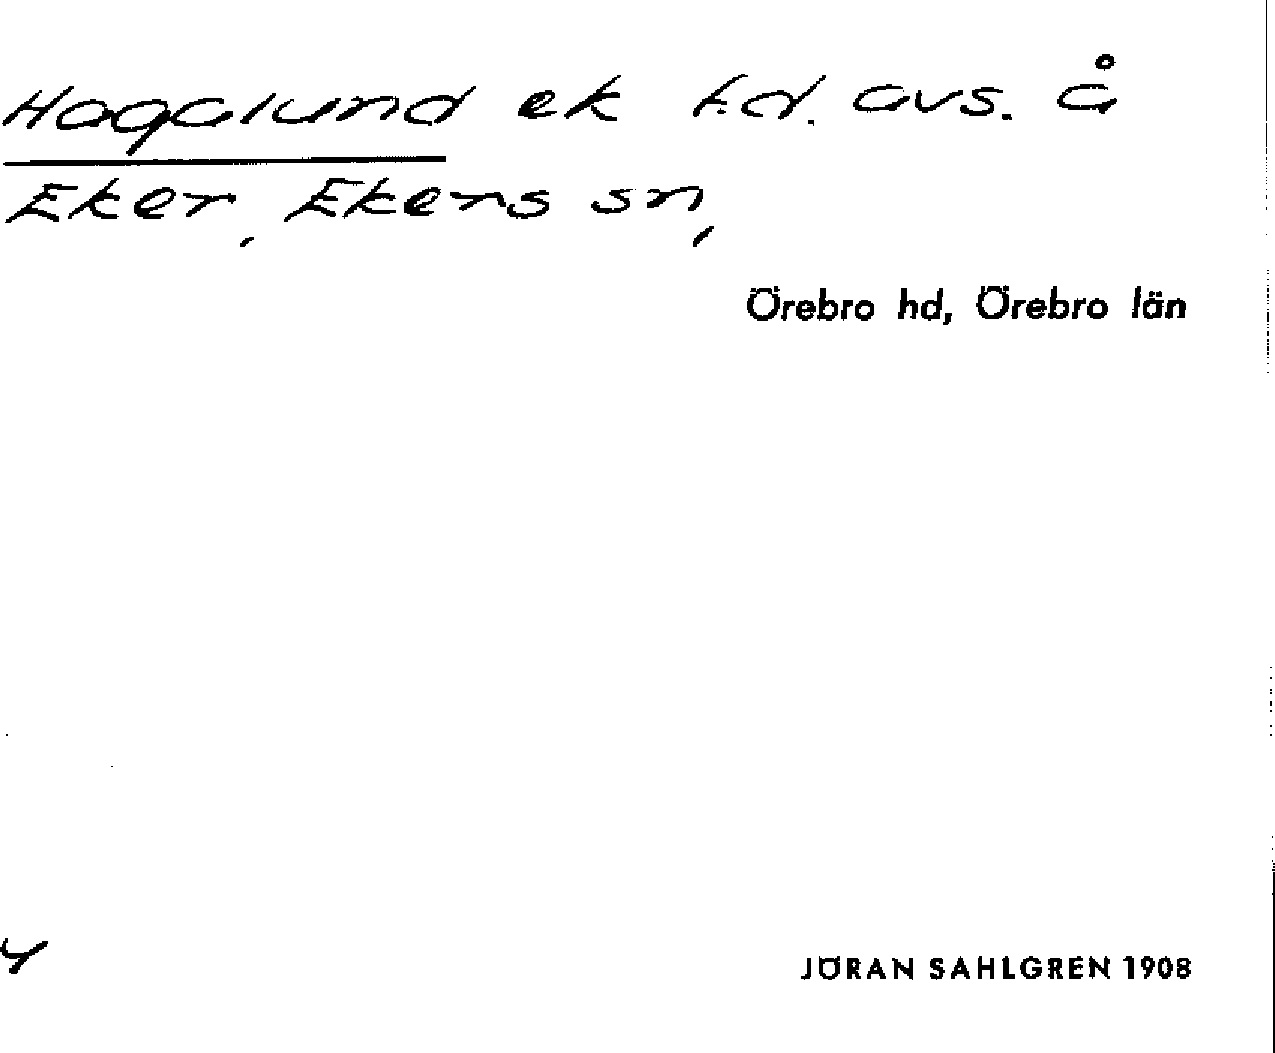 Hagalund ek f.d. avs. å
Eker, Ekers sn,
Örebro hd, Örebro län
4
JÖRAN SAHLGREN 1908